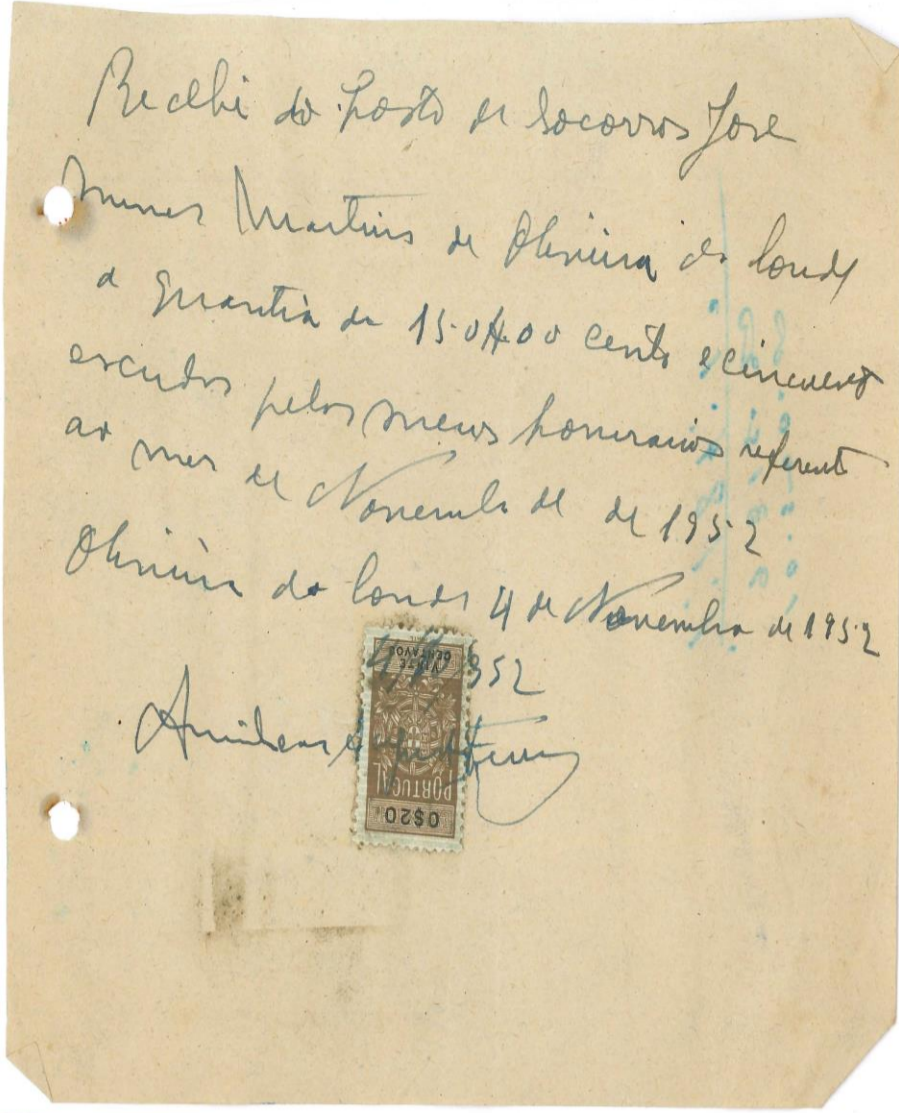 Recebi do Posto de Socorros José
Nunes Martins de Oliveira do Conde
a quantia de 150$00 cento e cincuenta
escudos pelos meus honorarios referente
ao mes de Novembro de de 1952
Oliveira do Conde 4 de Novembro de 1952
952
Amilcar
VINTE
CENTAVOS
PORTUGAL
0$20